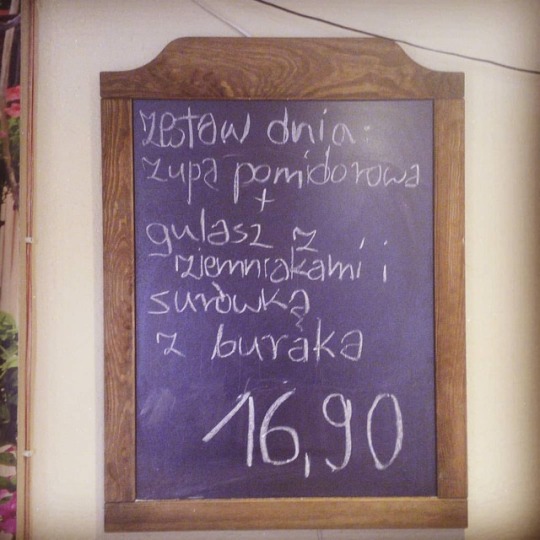 zestaw dnia:
zupa pomidorowa
+
gulasz z
ziemniakami i
surówką
z buraka
16,90